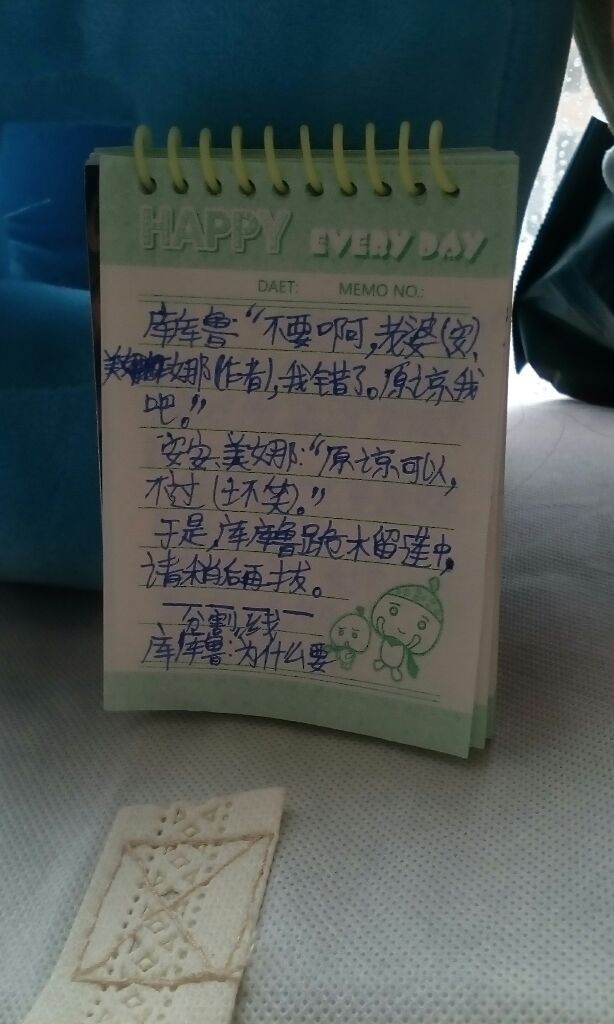 HAPPY EVERY DAY
DAET: MEMO NO.:
库库鲁:“不要啊,老婆(安)、
美娜(作者),我错了。原谅我
吧。”
安安、美娜:“原谅可以,
不过(坏笑)。”
于是,库库鲁跪木留莲中,
请稍后再拔。
分割线
库库鲁:“为什么要